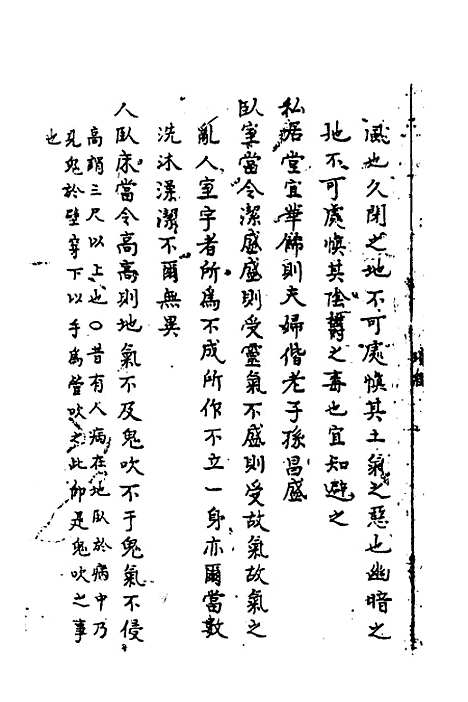 風也久閉之地不可處慎其土氣之惡也幽暗之
地不可處慎其陰欝之毒也宜知避之
私居堂宜華餝則夫婦偕老子孫昌盛
臥室當令潔盛盛則受靈氣不盛則受故氣故氣之
亂人室宇者所為不成所作不立一身亦爾當數
洗沐澡潔不爾無異
人臥床當令高高則地氣不及鬼吹不干鬼氣不侵
高謂三尺以上也〇昔有人病在地臥於病中乃
見鬼於壁穿下以手為管吹之此即是鬼吹之事
也